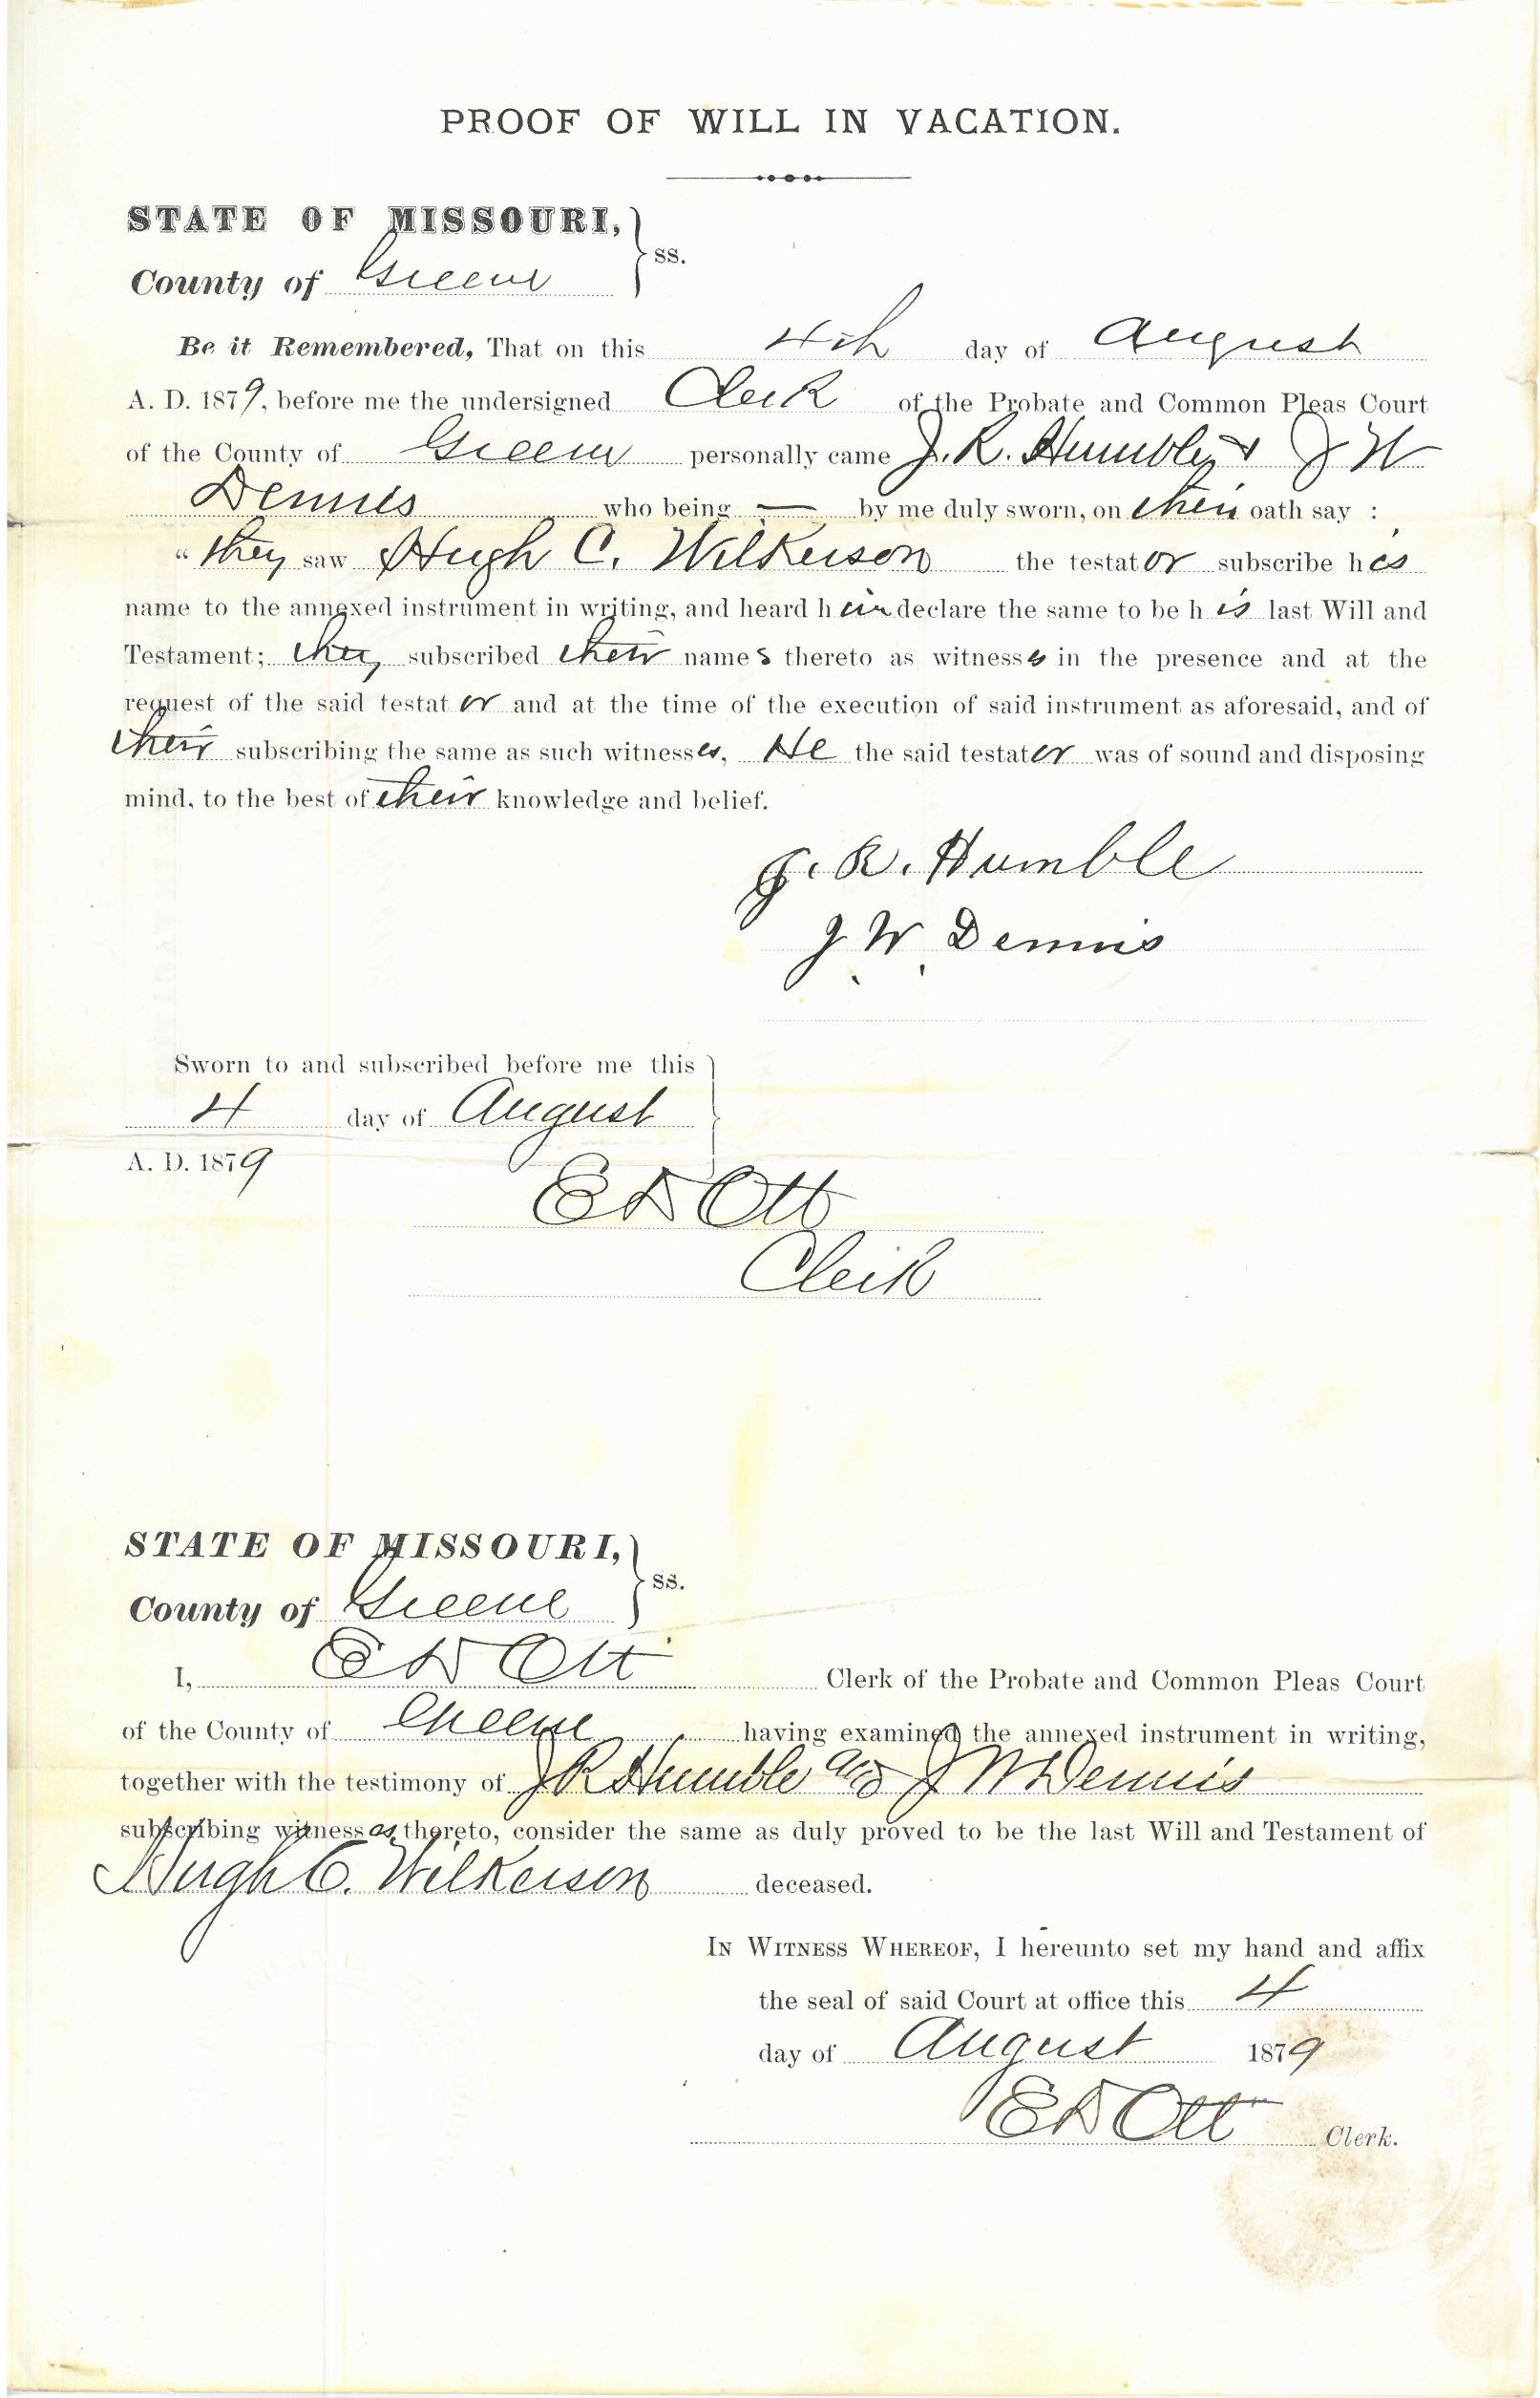 PROOF OF WILL IN VACATION.
STATE OF MISSOURI,
County of Greene } ss.
Be it Remembered, That on this 4th day of August
A. D. 1879, before me the undersigned Clerk of the Probate and Common Pleas Court
of the County of Greene personally came J. R. Humble & J W
Dennis who being — by me duly sworn, on their oath say :
"they saw Hugh C. Wilkerson the testator subscribe his
name to the annexed instrument in writing, and heard him declare the same to be his last Will and
Testament; they subscribed their names thereto as witnesses in the presence and at the
request of the said testator and at the time of the execution of said instrument as aforesaid, and of
their subscribing the same as such witnesses, He the said testator was of sound and disposing
mind, to the best of their knowledge and belief.
J. R. Humble
J W Dennis
Sworn to and subscribed before me this
4 day of August
A. D. 1879
E D Ott
Clerk
STATE OF MISSOURI,
County of Greene } ss.
I, E D Ott Clerk of the Probate and Common Pleas Court
of the County of Greene having examined the annexed instrument in writing,
together with the testimony of J R Humble and J W Dennis
subscribing witnesses thereto, consider the same as duly proved to be the last Will and Testament of
Hugh C. Wilkerson deceased.
IN WITNESS WHEREOF, I hereunto set my hand and affix
the seal of said Court at office this 4
day of August 1879
E D Ott Clerk.